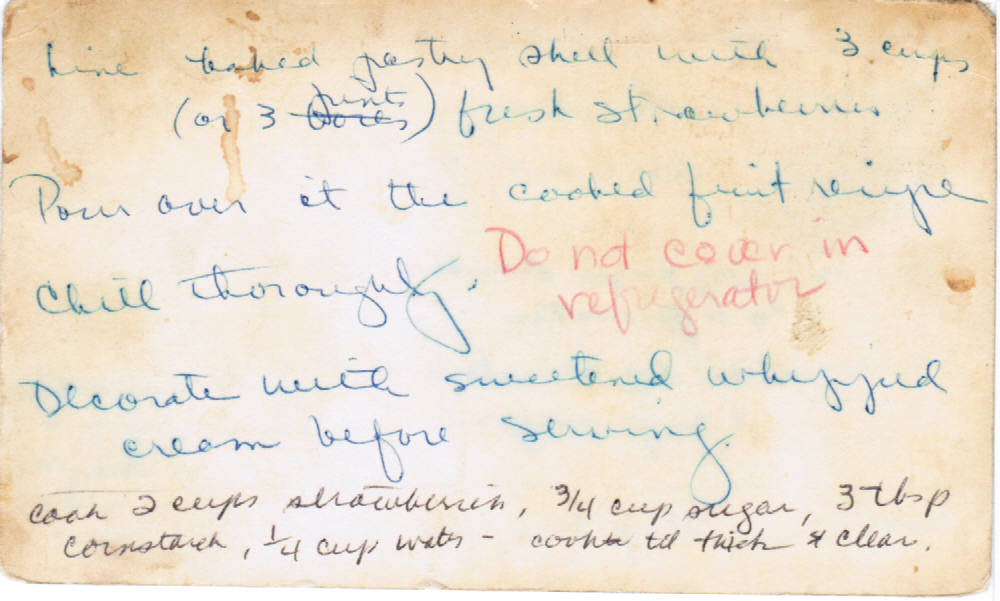 Line baked pastry shell with 3 cups
pints
(or 3 boxes) fresh strawberries
Pour over it the cooked fruit recipe
Chill thoroughly. Do not cover in
refrigerator
Decorate with sweetened whipped
cream before serving.
cook 2 cups strawberries, 3/4 cup sugar, 3 tbsp
cornstarch, 1/4 cup water - cook til thick & clear.